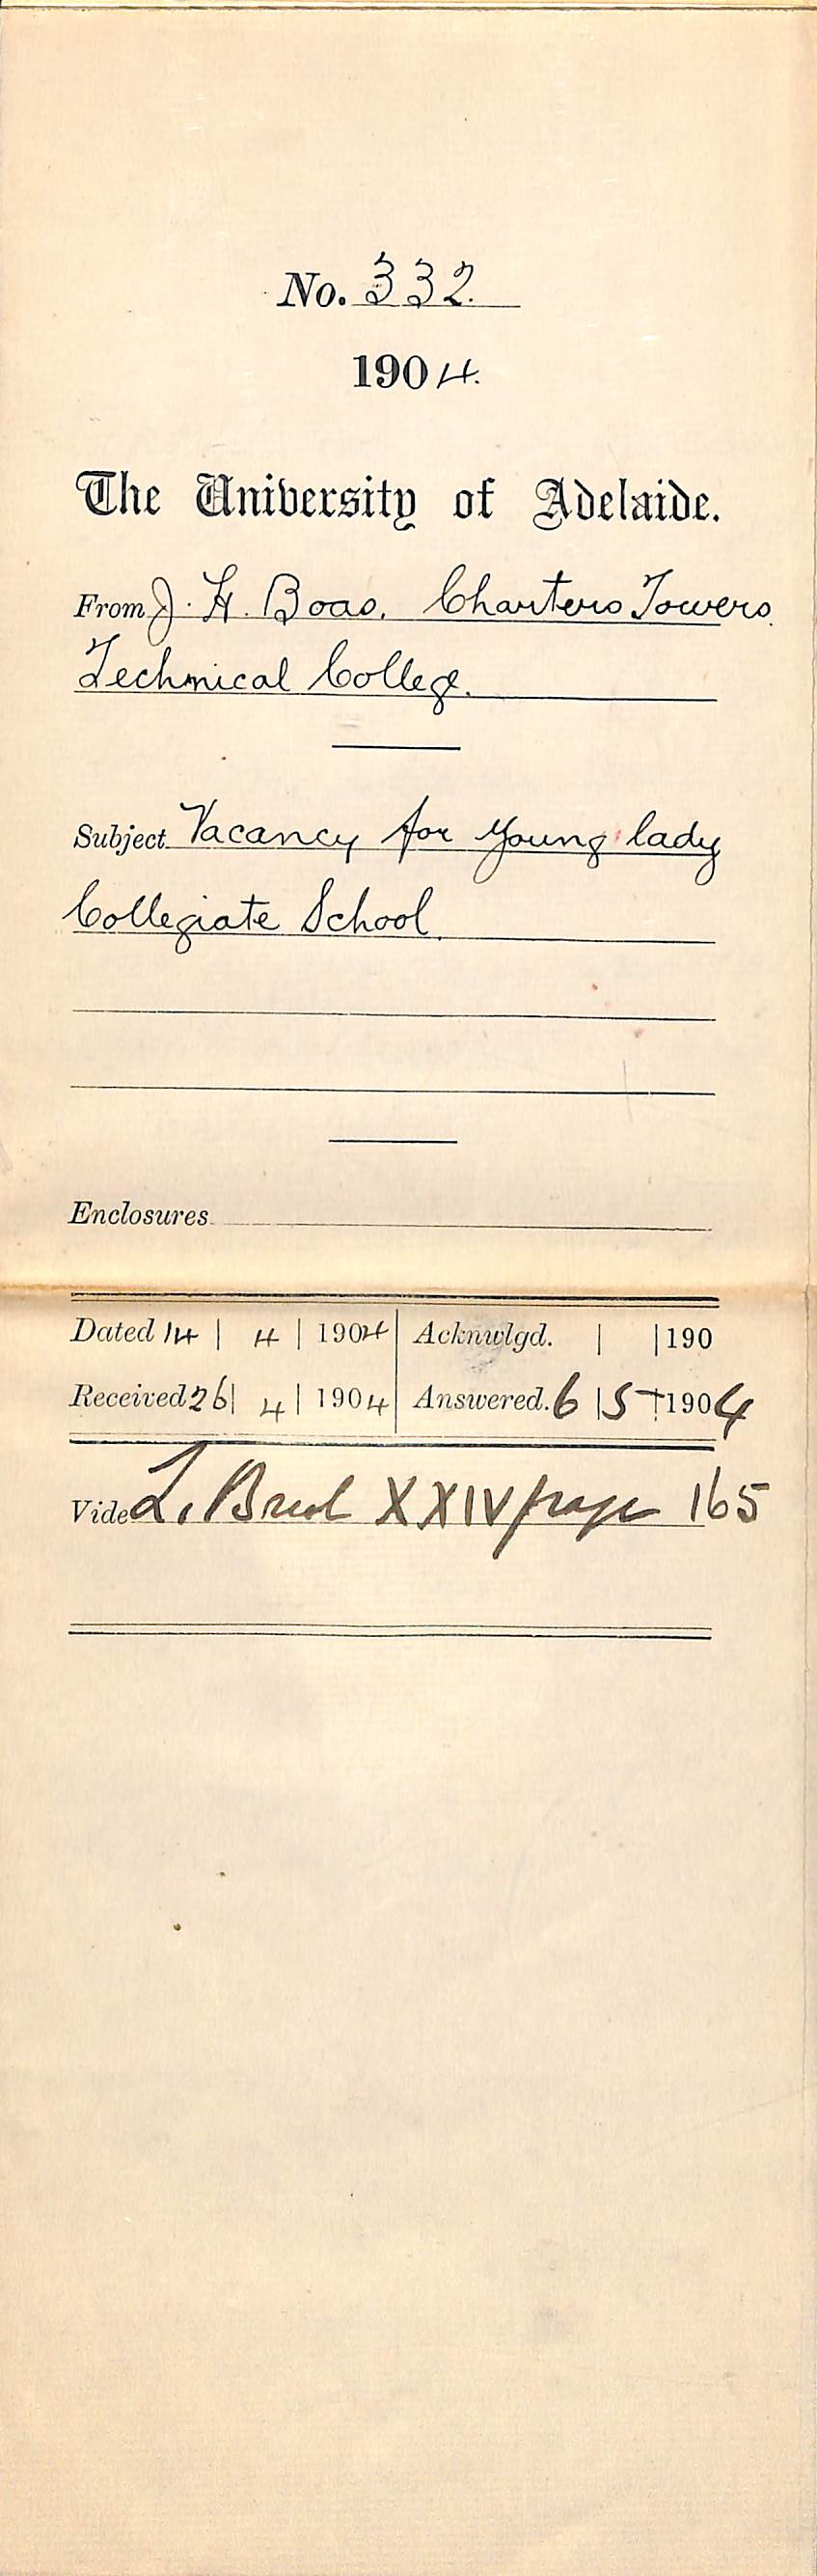 No. 332.
1904.
The University of Adelaide.
From J. H. Boas. Charters Towers.
Technical College.
Subject Vacancy for young lady
Collegiate School.
Enclosures
Dated 14 | 4 | 1904 | Acknwlgd. | | 190
Received 26 | 4 | 1904 | Answered. 6 | 5 | 1904
Vide L. XXIV page 165